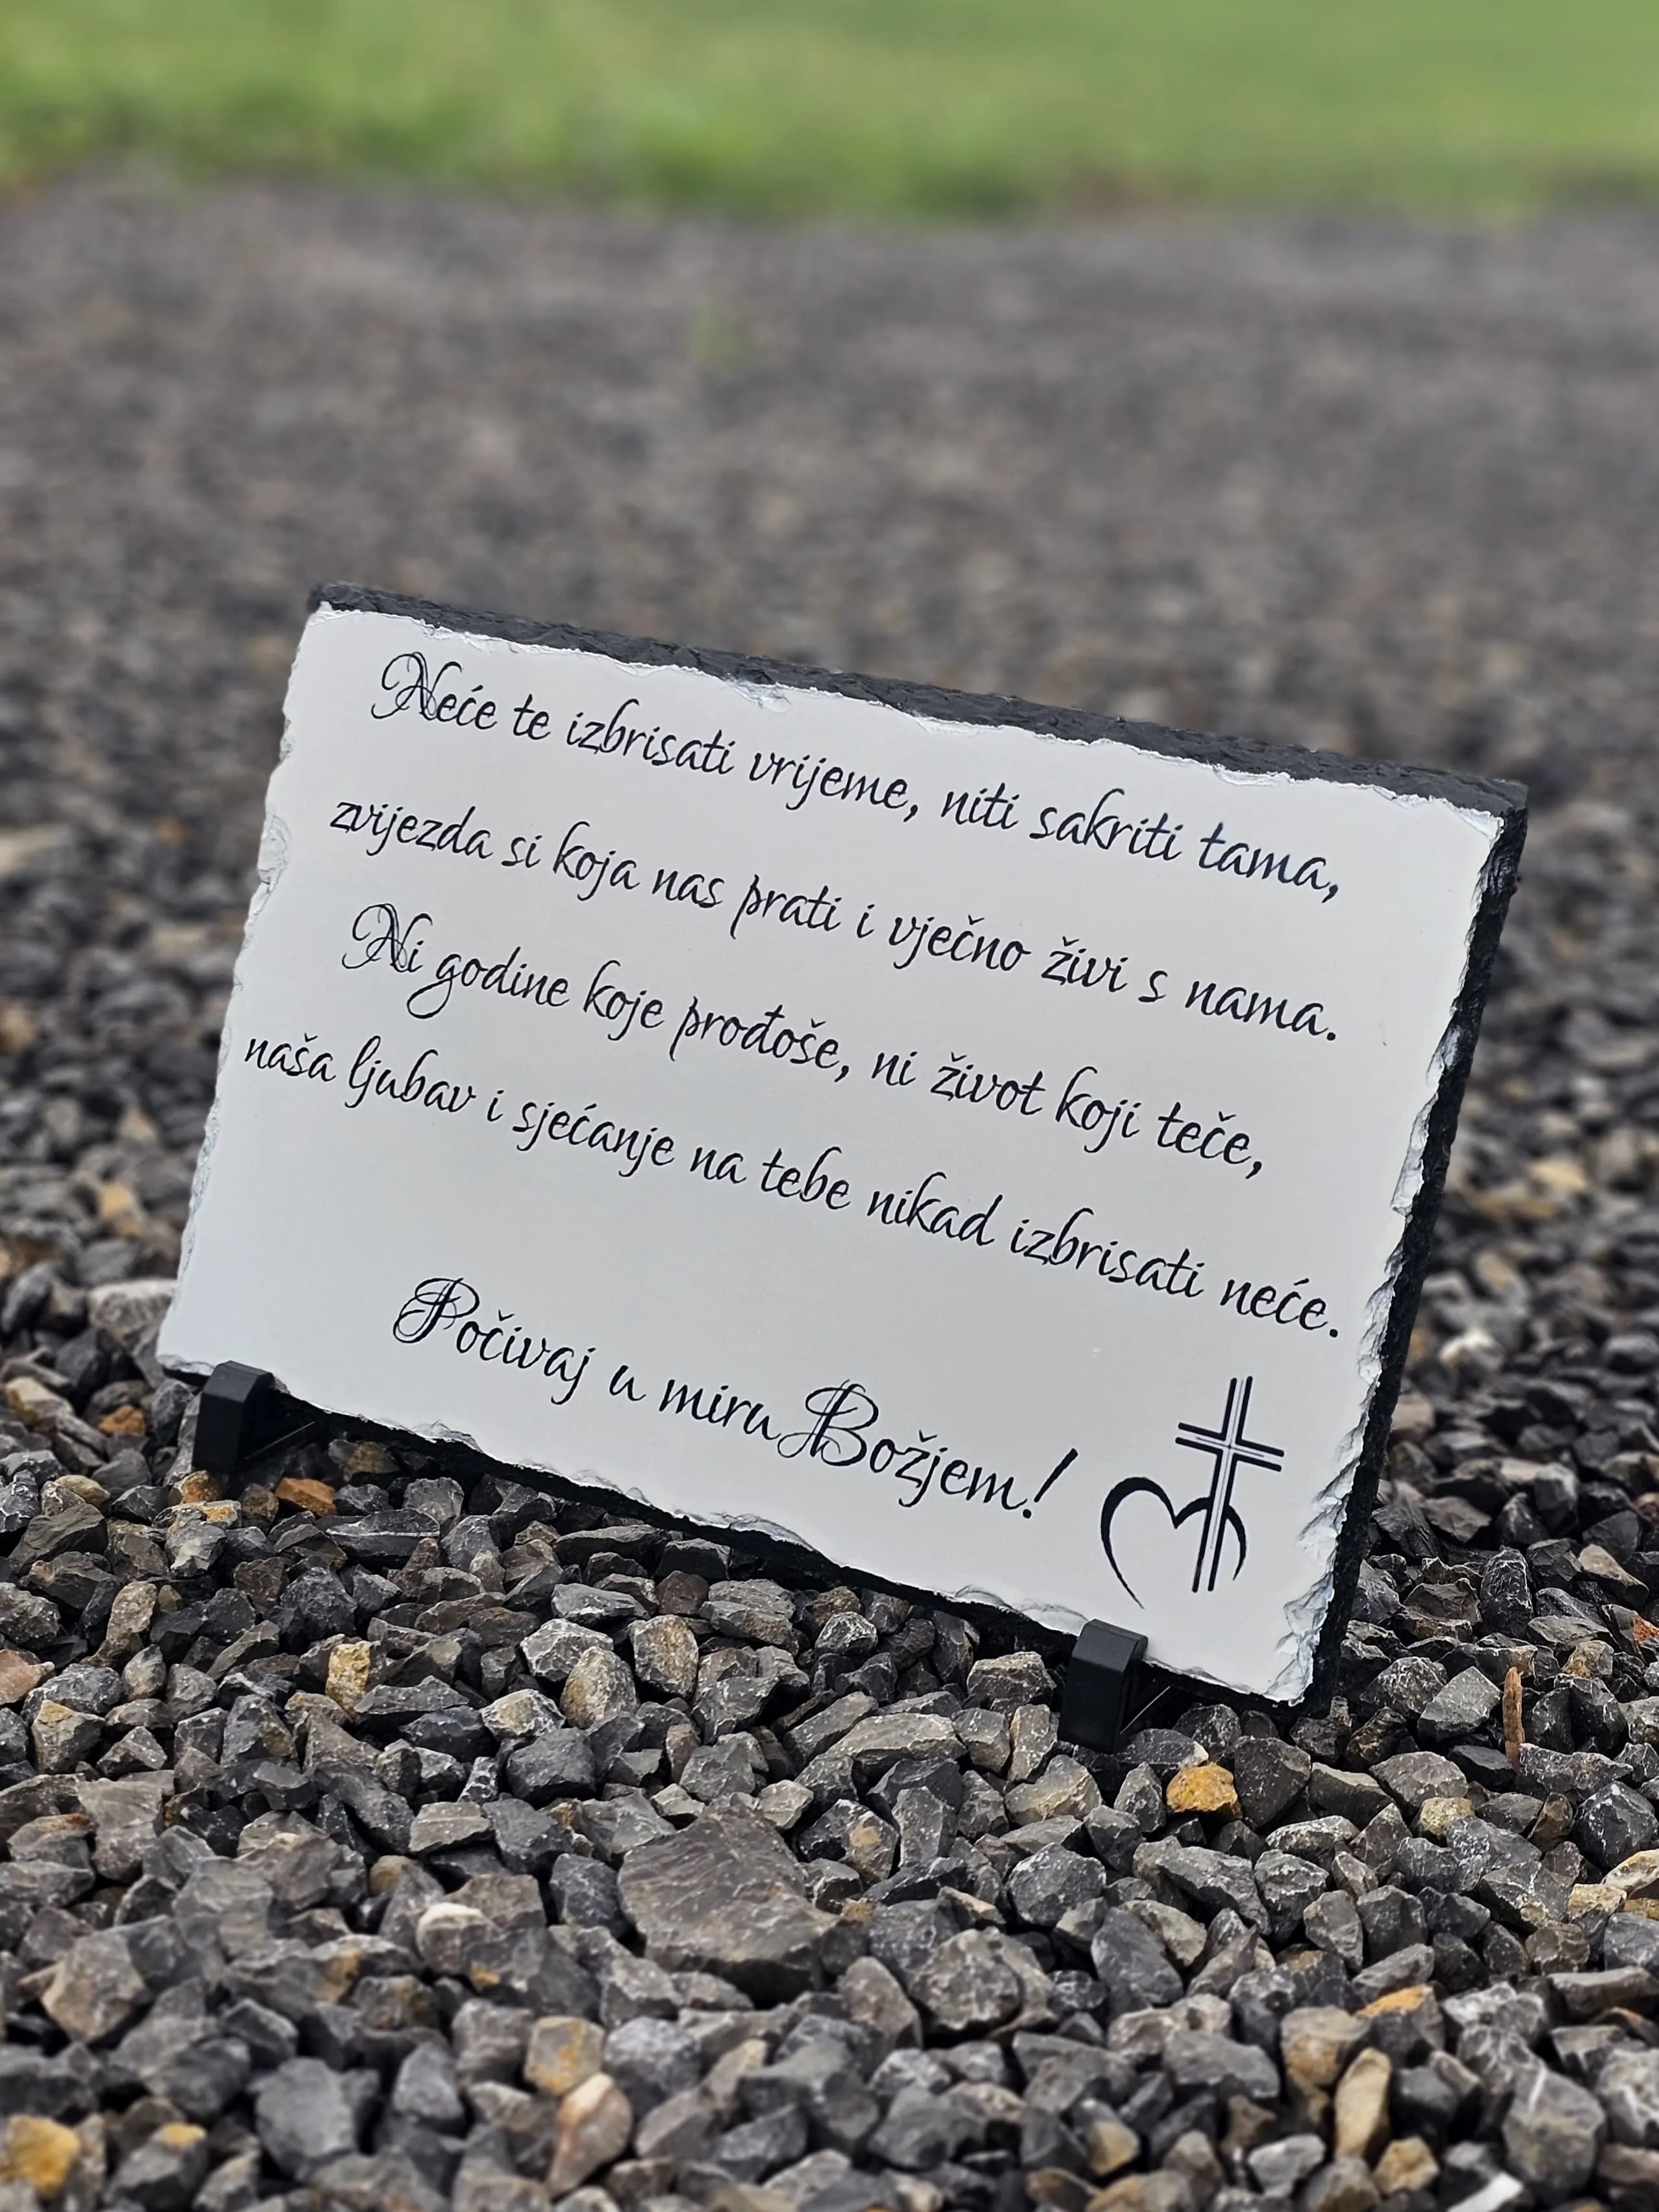 Neće te izbrisati vrijeme, niti sakriti tama,
zvijezda si koja nas prati i vječno živi s nama.
Ni godine koje prođoše, ni život koji teče,
naša ljubav i sjećanje na tebe nikad izbrisati neće.
Počivaj u miru Božjem!